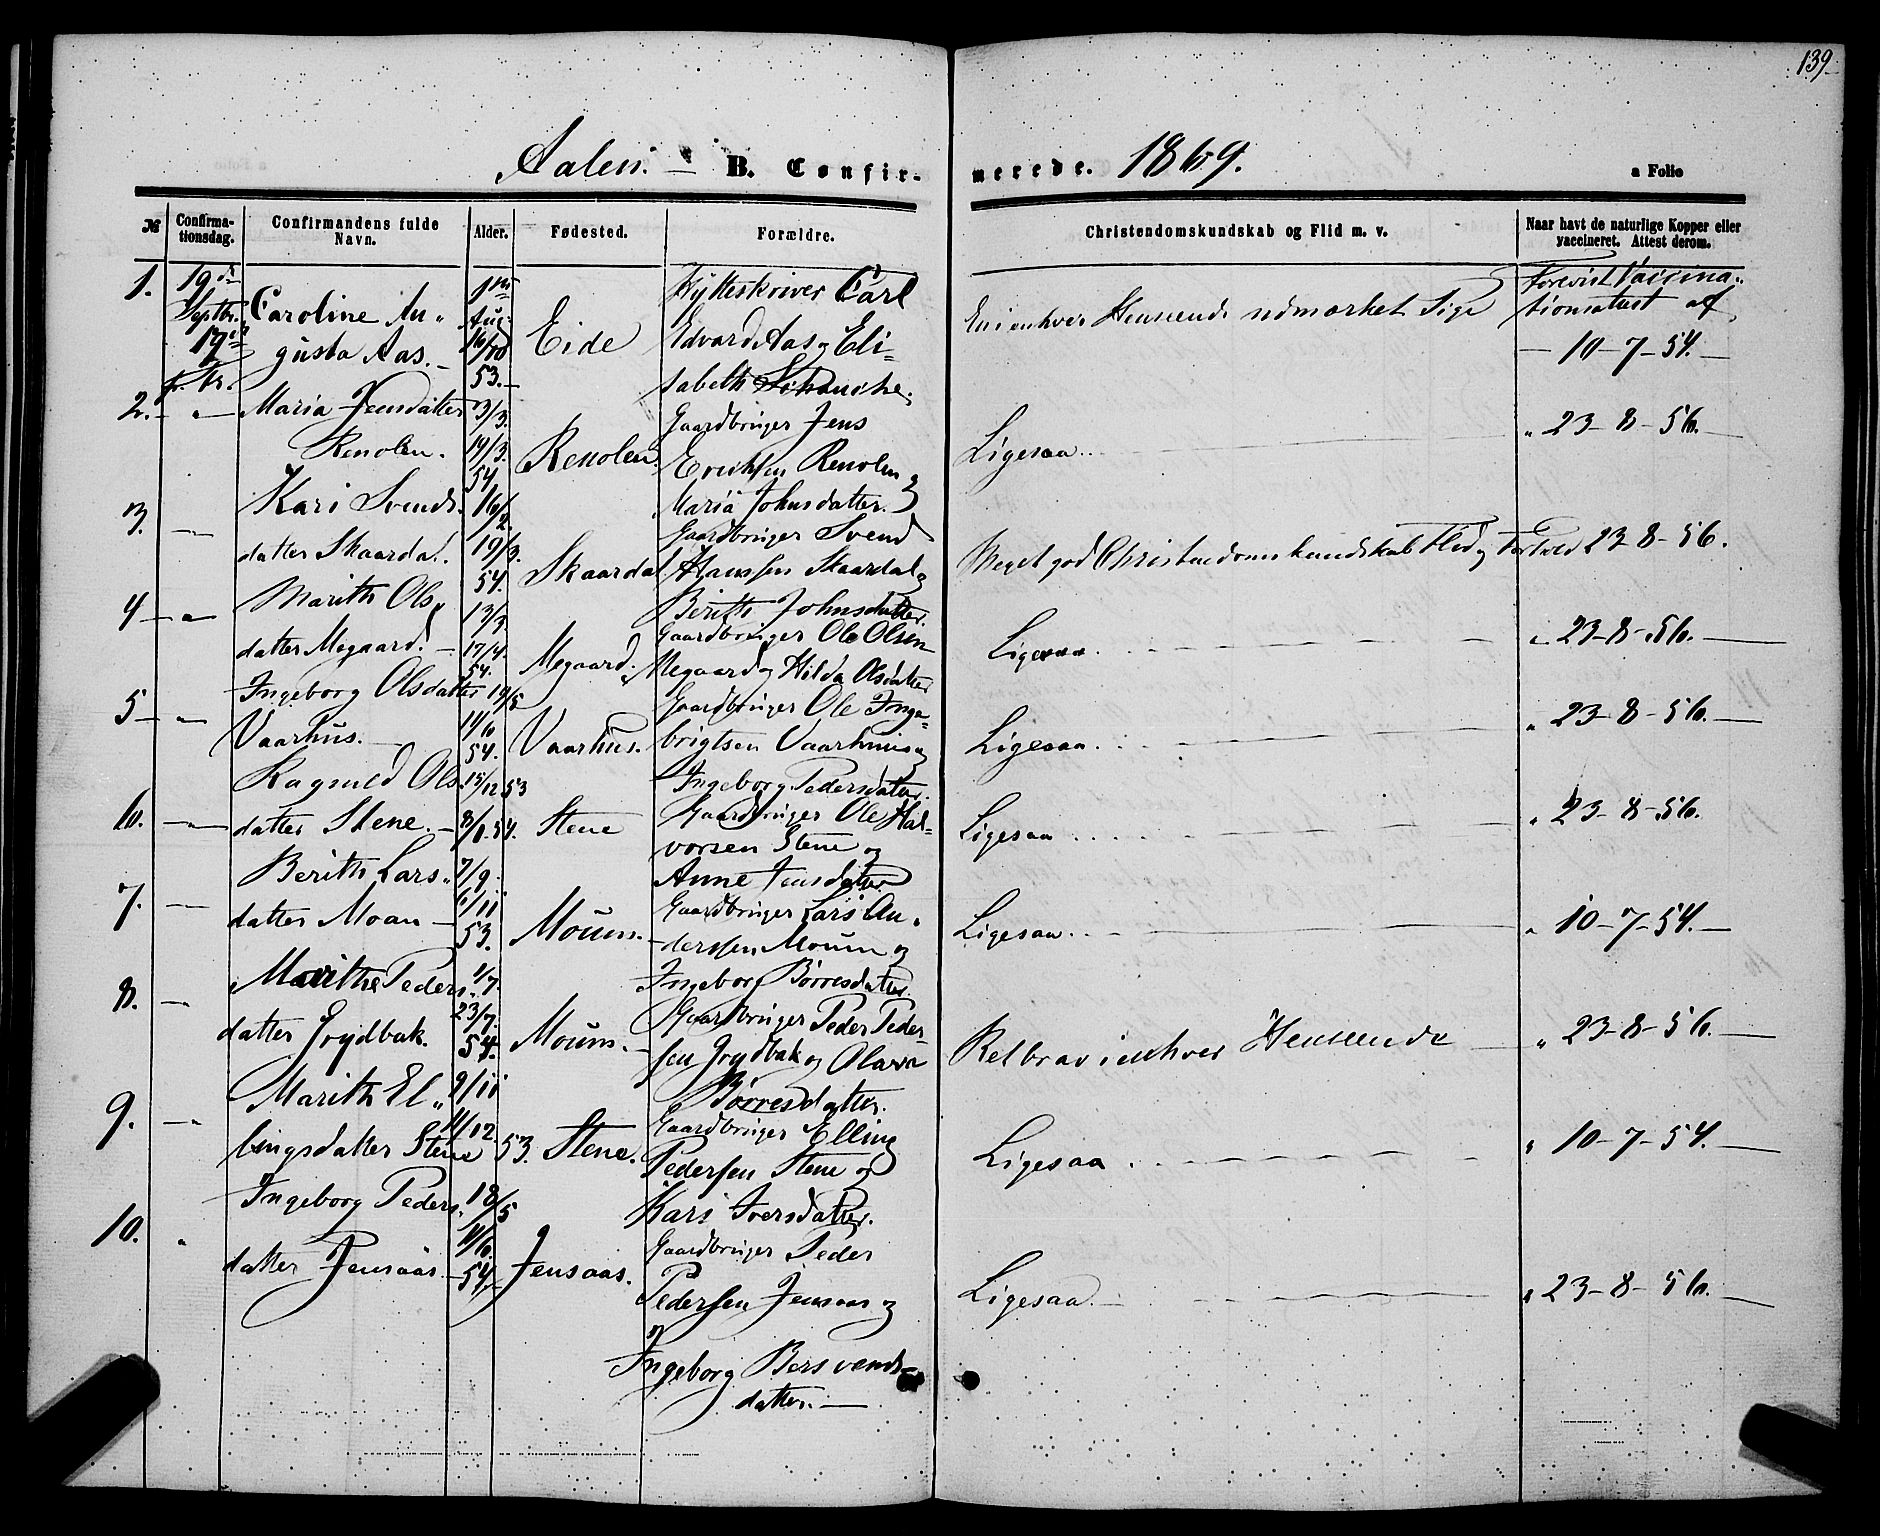 139
Aalen. — B. Confir-
merede. 1869.
a Folio
№
Confirma-
tionsdag.
Confirmandens fulde
Navn.
Alder.
Fødested.
Forældre.
Christendomskundskab og Flid m. v.
Naar havt de naturlige Kopper eller
vaccineret. Attest derom.
1. 19de
Septbr.
17de
p. Tr.
Caroline Au„
gusta Aas. —
1ste
Aug:
16/10
53. —
Eide
Hytteskriver Carl
Edvard Aas og Eli=
sabeth Schanche.
En i enhver Henseende udmærket Pige
Forevist Vaccina-
tionsattest af
— 10-7-54. —
2. — „ —
Maria Jensdatter
Renolen.
3/3.
19/3.
54
Renolen.
Gaardbruger Jens
Erichsen Renolen og
Maria Johnsdatter.
Ligesaa.
„ 23-8-56. —
3. —
Kari Svends.
datter Skaardal.
16/2.
19/3.
54.
Skaardal.
Gaardbruger Svend
Hanssen Skaardal og
Berith Johnsdatter.
Meget god Christendomskundskab Flid og Forhold
23-8-56.
4 — „ —
Marith Ols„
datter Megaard. —
13/3
17/4.
54.
Megaard.
Gaardbruger Ole Olsen
Megaard og Hilda Olsdatter
Ligesaa
„ 23-8-56. —
5 — „ —
Ingeborg Olsdatter
Vaarhus. —
19/5
11/6
54.
Vaarhus.
Gaardbruger Ole Inge=
brigtsen Vaarhuus og
Ingeborg Pedersdatter.
Ligesaa.
„ 23-8-56. —
6. —
Ragnild Ols
datter Stene. —
15/12 53
8/1 54.
Stene
Gaardbruger Ole Hal=
vorsen Stene og
Anne Jensdatter
Ligesaa
„ 23-8-56.
7. —
Berith Lars„
datter Moan —
7/9.
6/11
53.
Mouen.
Gaardbruger Lars An„
derssen Mouen og
Ingeborg Børresdatter.
Ligesaa.
„ 10-7-54. —
8. —
Marithe Peders„
datter Grydbak.
1/7.
23/7.
54.
Mouen.
Gaardbruger Peder Peder-
sen Grydbak og Olava
Børresdatter.
Retbrav i enhver Henseende
„ 23-8-56. —
9. —
Marith El„
lingsdatter Stene
9/11
11/12
53.
Stene.
Gaardbruger Elling
Pedersen Stene og
Kari Iversdatter.
Ligesaa
„ 10-7-54. —
10. „
Ingeborg Peders.
datter Jensaas. —
18/5
11/6.
54. —
Jensaas.
Gaardbruger Peder
Pedersen Jensaas og
Ingeborg Bersvends-
datter. —
Ligesaa. —
„ 23-8-56. —